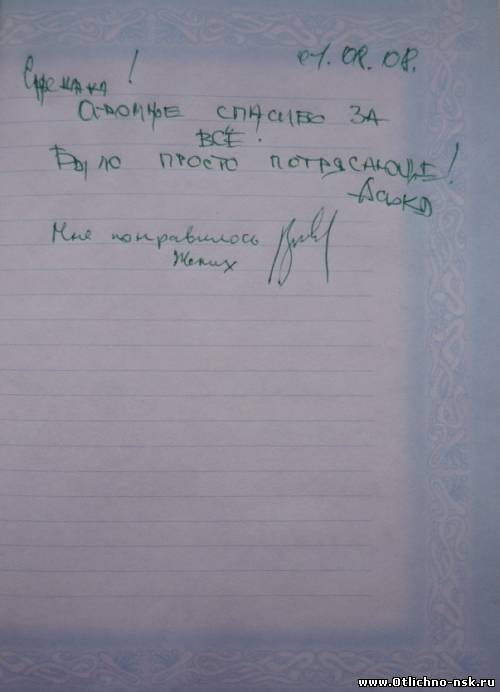 01.08.08.
Снежана!
Огромное спасибо за
всё.
Было просто потрясающе!
-Аська
Мне понравилось
Жених
www.Otlichno-nsk.ru